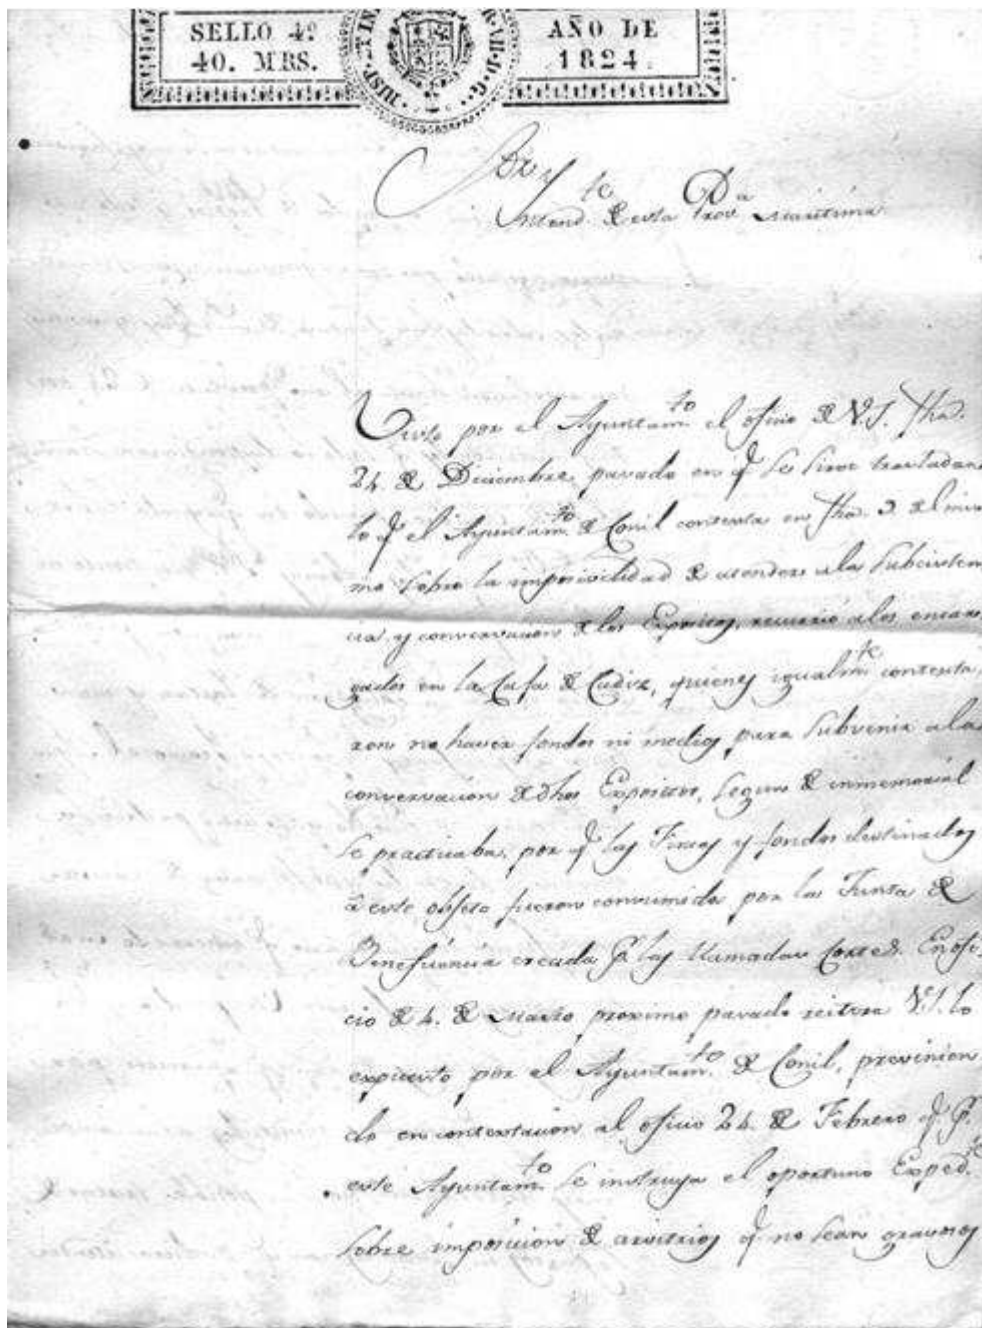 SELLO 4º
40. MRS.
AÑO DE
1824.
Sor
Intend.te de esta Prov.a Maritima
Visto por el Ayuntam.to el oficio de V.S. fha.
24. de Diciembre pasado en q.e se sirve trasladar
lo q.e el Ayuntam.to de Conil contexta en fha. 3. del mis
mo sobre la imposivilidad de atender ala Subcisten
cia y conservacion de los Expositos, recurrió alos encar
gados en la Casa de Cadiz, quienes igualm.te contexta
ron no haver fondos ni medios para subvenir ala
conservacion de dhos Expositos, segun de inmemorial
se practicaba, por q.e las Fincas y fondos destinados
á este objeto fueron consumidos por la Junta de
Beneficencia creada p.r las llamadas Cortes. En ofi
cio de 4. de Marzo proximo pasado reitera V.S. lo
expuesto por el Ayuntam.to de Conil, previnien
do en contextacion al oficio 24. de Febrero q.e p.r
este Ayuntam.to se instruya el oportuno Exped.te
sobre imposicion de arvitrios q.e no sean gravosos